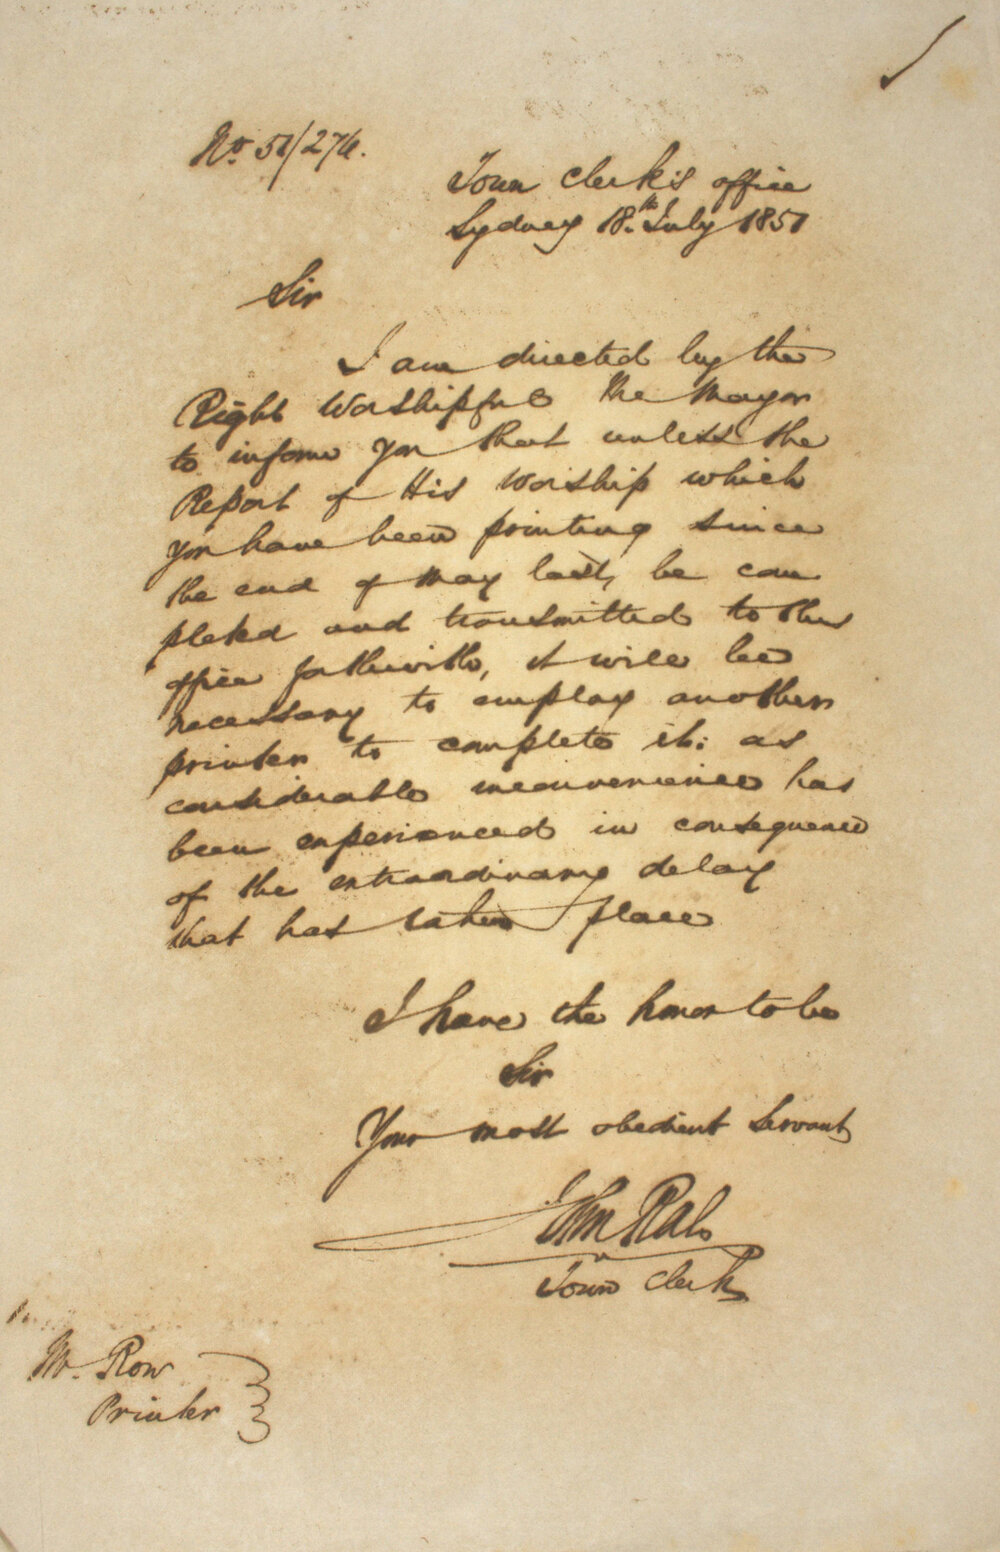 No. 51/274.
Town Clerk's office
Sydney 18th July 1851
Sir
I am directed by the
Right Worshipful the Mayor
to inform you that unless the
Report of His Worship which
you have been printing since
the end of May last, be com
pleted and transmitted to this
office forthwith, it will be
necessary to employ another
printer to complete it: as
considerable inconvenience has
been experienced in consequence
of the extraordinary delay
that has taken place
I have the honor to be
Sir
Your most obedient servant
John Rae
Town Clerk
Mr. Row
Printer